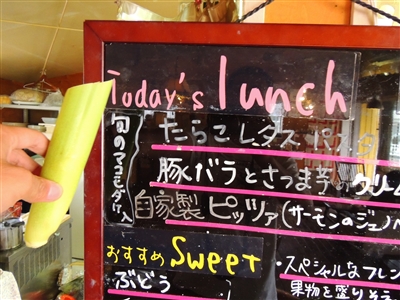 Today's lunch
旬のマコモダケ入
たらこレタスパスタ
豚バラとさつま芋のクリーム
自家製 ピッツァ(サーモンのジェノベ
おすすめ Sweet
ぶどう
・スペシャルなフレン
果物を盛りそう